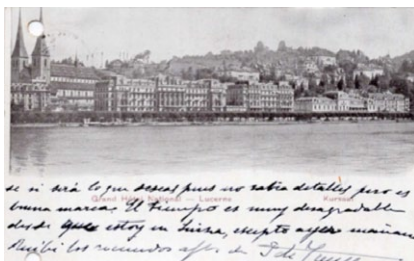 Grand Hotel National — Lucerne Kursaal
se si será lo que deseas pues no sabia detalles pero es
buena marca. El tiempo es muy desagradable
desde que estoy en Suiza, excepto ayer mañana
Recibí los recuerdos